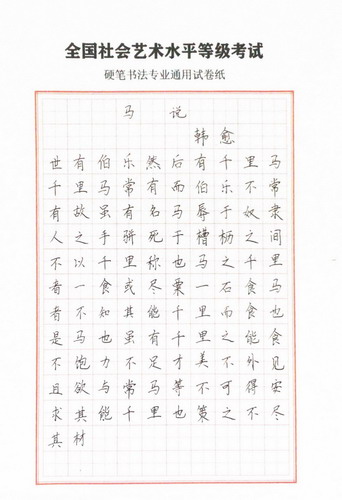 全国社会艺术水平等级考试
硬笔书法专业通用试卷纸
马 说
韩愈
世有伯乐然后有千里马
千里马常有而伯乐不常
有故虽有名马辱于奴隶
人之手骈死于槽枥之间
不以千里称也马之千里
者一食或尽粟一石食马
者不知其能千里而食也
是马也虽有千里之能食
不饱力不足才美不外见
且欲与常马等不可得实
求其能千里也策之不尽
其材